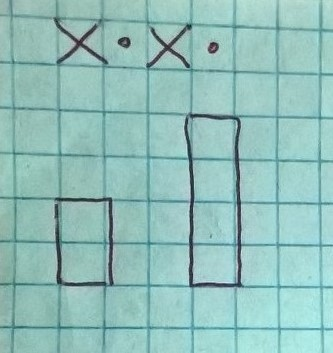 X • X •